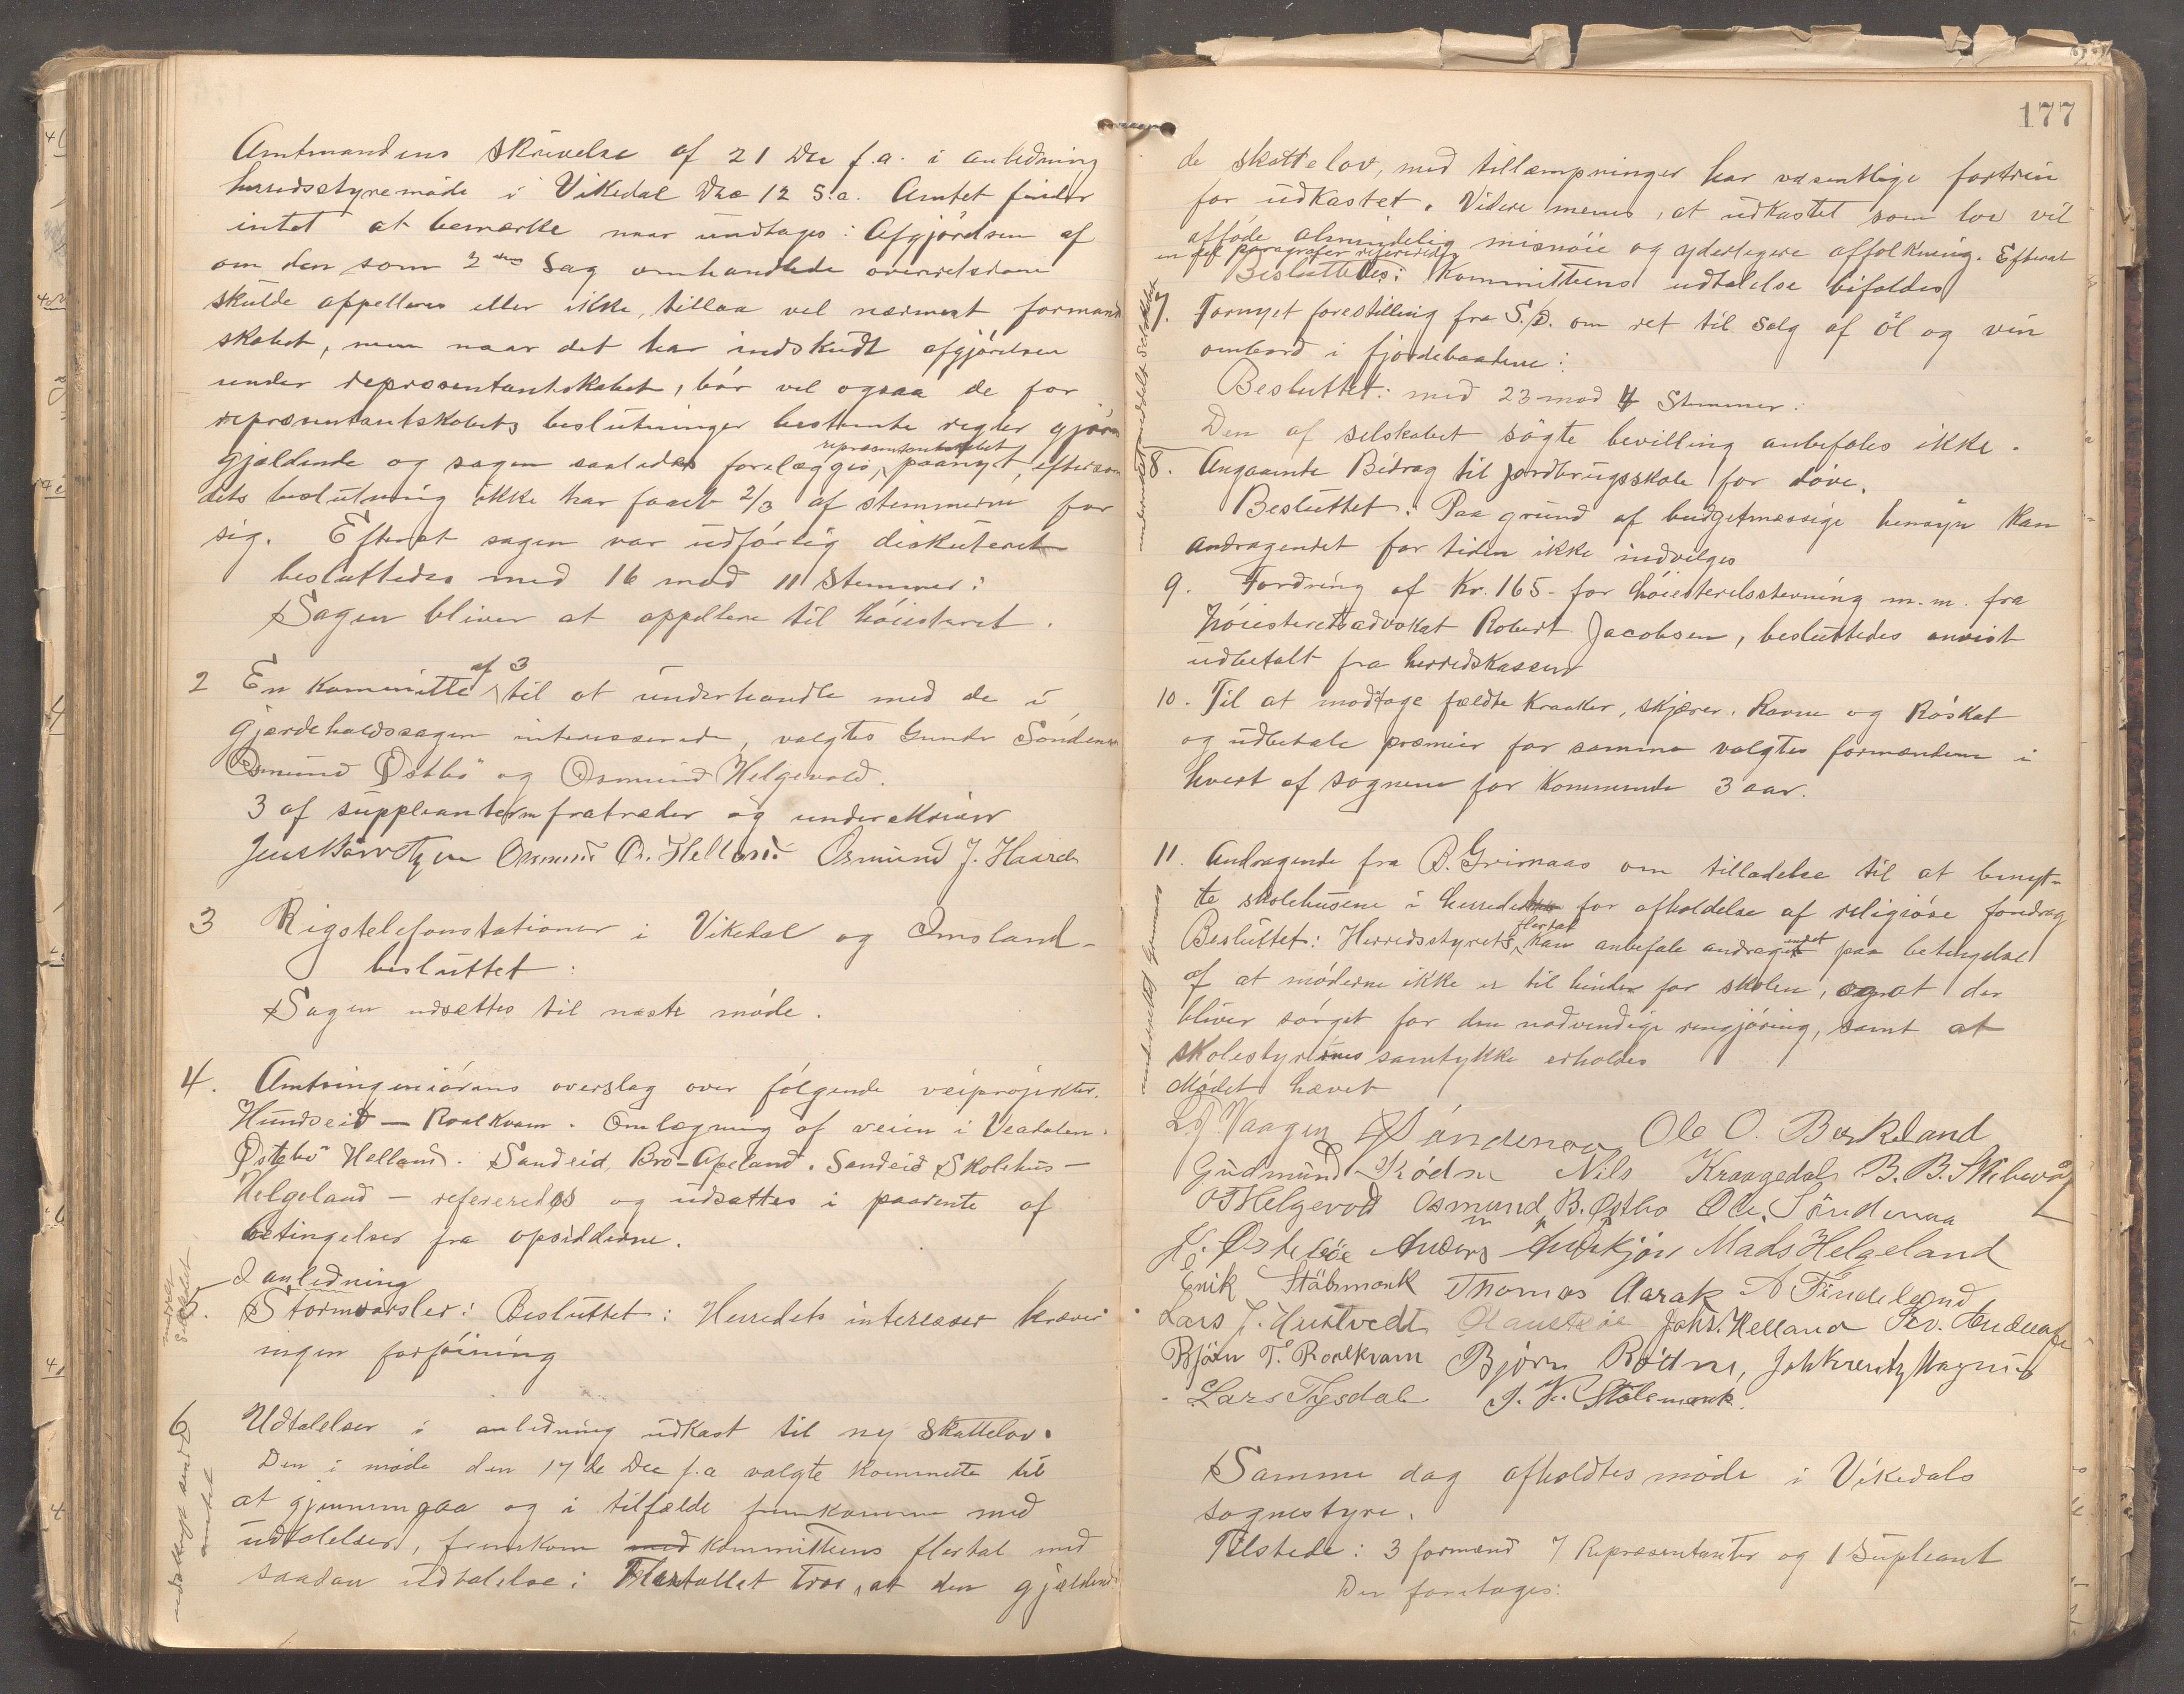 Amtmandens skrivelse af 21 Dec f.a. i anledning
herredsstyremøde i Vikedal Dec 12 s.a. Amtet finder
intet at bemærke naar undtages: Afgjørelsen af
om den som 2den Sag omhandlede overretsdom
skulde appelleres eller ikke, tillaa vel nærmest formand
skabet, men naar det har indskudt afgjørelsen
under repræsentantskabet, bør vel ogsaa de for
repræsentantskabets beslutninger bestemte regler gjøres
gjældende og sagen saaledes forelægges repræsentantskabet paanyt, eftersom
dets beslutning ikke har faaet 2/3 af stemmerne for
sig. Efterat sagen var udførlig diskuteret
besluttedes med 16 mod 11 Stemmer:
Sagen bliver at appellere til høiesteret.
2 En Kommitte af 3 til at underhandle med de i
gjærdeholdssagen interesserede, valgtes Gunder Søndenaa
Osmund Østbø og Osmund Helgevold.
3 af suppleanterne fratræder og underskriver
Osmund O. Helland Osmund J. Haaree
3 Rigstelefonstationer i Vikedal og Imsland -
besluttet:
Sagen udsættes til næste møde.
4. Amtsingeniørens overslag over følgende veiprojekter.
Hundseid — Roalkvam. Omlægning af veien i Vesdalen.
Østebø Helland. Sandeid, Bro-Apeland. Sandeid Skolehus —
Helgeland — refereredes og udsattes i paavente af
betingelser fra opsidderne.
5. I anledning
Stormvarsler: Besluttet: Herredets interesser kræver
ingen forføining
meddelt Selskabet
6 Udtalelser i anledning udkast til ny skattelov.
Den i møde den 17de Dec f.a valgte Kommitte til
at gjennemgaa og i tilfælde fremkomme med
udtalelser, fremkom med kommitteens flertal med
saadan udtalelse: Flertallet tror, at den gjældende
udskrift sendt amtet
177
de skattelov, med tillempninger har væsentlige fortrin
for udkastet. Videre menes, at udkastet som lov vil
afføde almindelig misnøie og yderligere affolkning. Efterat
en del paragrafer refereredes
Besluttedes: Kommitteens udtalelse bifaldes
7. Fornyet forestilling fra S.D. om ret til salg af øl og vin
ombord i fjordebaadene:
Besluttet: med 23 mod 4 Stemmer:
Den af selskabet søgte bevilling anbefales ikke.
underrettet meddelt Selskabet
8. Angaaende Bidrag til jordbrugsskole for døve.
Besluttet: Paa grund af budgetmæssige hensyn kan
andragendet for tiden ikke indvilges
9. Fordring af Kr. 165- for høiesteretsstevning m.m. fra
Høiesteretsadvokat Robert Jacobsen, besluttedes anvist
udbetalt fra herredskassen
10. Til at modtage fældte Kraaker, skjærer, Ravne og Røskat
og udbetale præmier for samme valgtes formændene i
hvert af sognene for kommende 3 aar.
11. Andragende fra B. Grimaas om tilladelse til at benyt-
te skolehusene i herredet for afholdelse af religiøse foredrag
Besluttet: Herredsstyrets flertal kan anbefale andragendet paa betingelse
af at møderne ikke er til hinder for skolen, og at der
bliver sørget for den nødvendige rengjøring, samt at
skolestyrernes samtykke erholdes
underrettet Grimaas
Mødet hævet
L. J. Vaagen Søndenaa Ole O. Birkeland
Gudmund Rødne Nils Kraagedal B. B. Skibevåg
O Helgevold Osmund B. Østbø Ole Søndenaa
J. Østebøe Anders Andskjær Mads Helgeland
Erik Stølsmark Thomas Aarak A Findeland
Lars J. Hustvedt Jahs. Helland
Bjørn T. Roalkvam Bjørn Rødne,
Lars Tjesdal J. K. Stølsmark.
Samme dag afholdtes møde i Vikedals
sognestyre.
Tilstede: 3 formænd 7 Repræsentanter og 1 Supleant
Der foretages: